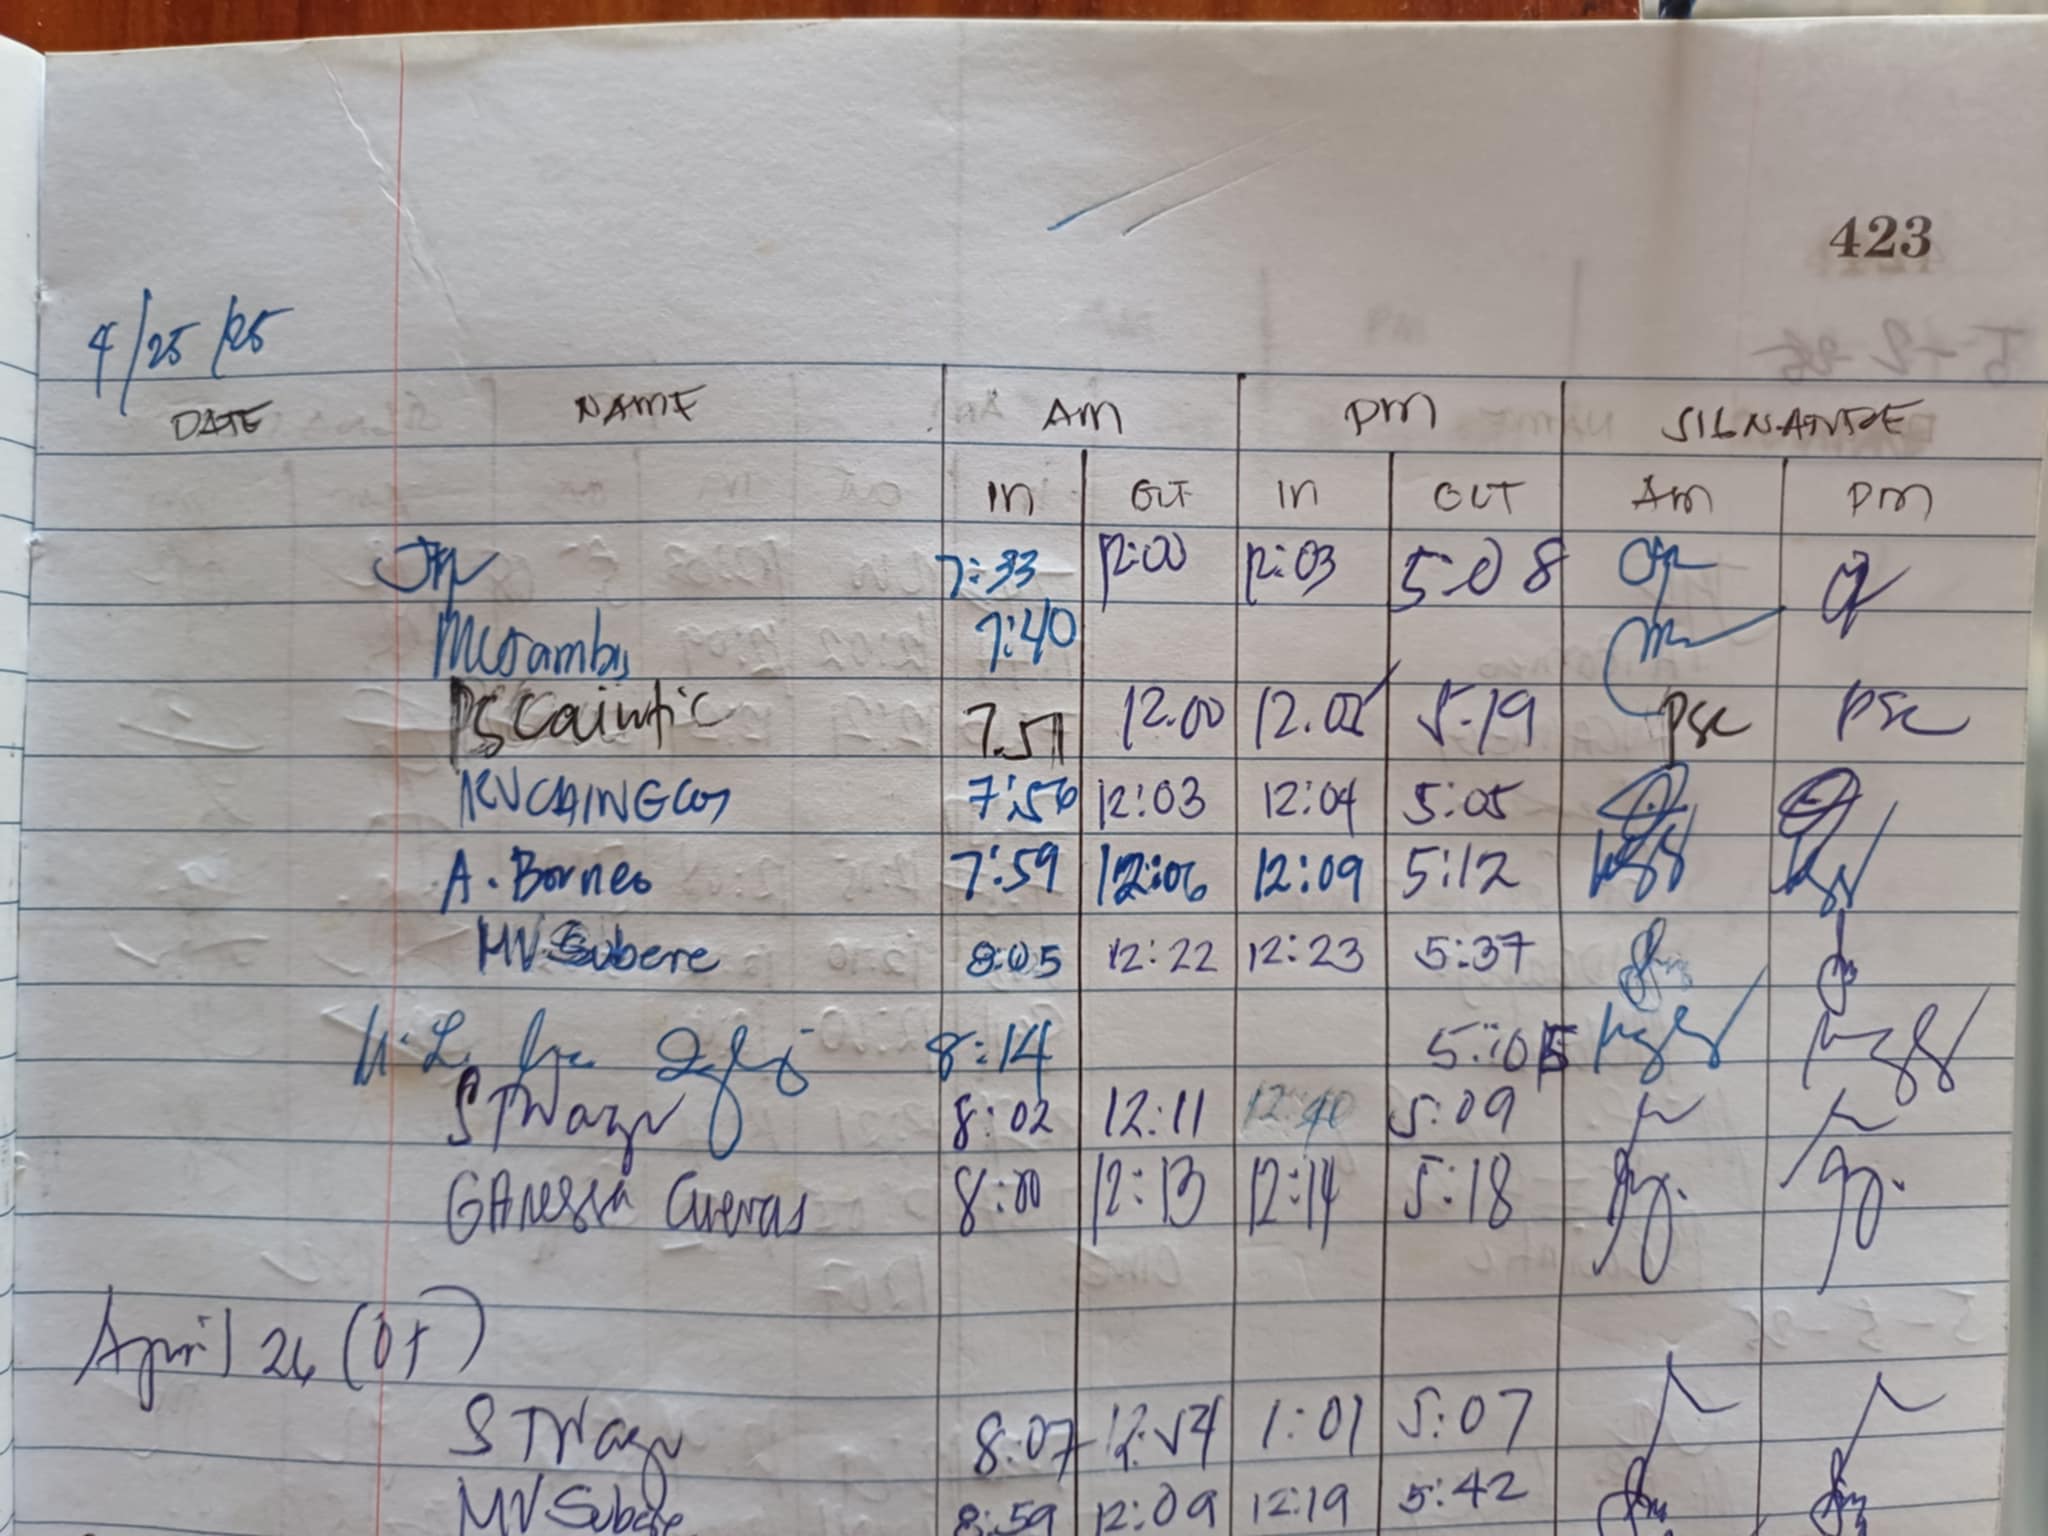 423
4/25/25
DATE NAME AM PM SIGNATURE
IN OUT IN OUT AM PM
7:33 12:00 12:03 5:08
7:40
PSCaintic 7.51 12.00 12.02 5.19 PSC PSC
RVCAINGCOY 7:56 12:03 12:04 5:05
A. Borneo 7:59 12:06 12:09 5:12
MV Subere 8:05 12:22 12:23 5:37
8:14 5:05
8:02 12:11 12:40 5:09
GAnessa Cuevas 8:00 12:13 12:14 5:18
April 26 (OT)
8:07 12:54 1:01 5:07
MV Subere 8:59 12:09 12:19 5:42